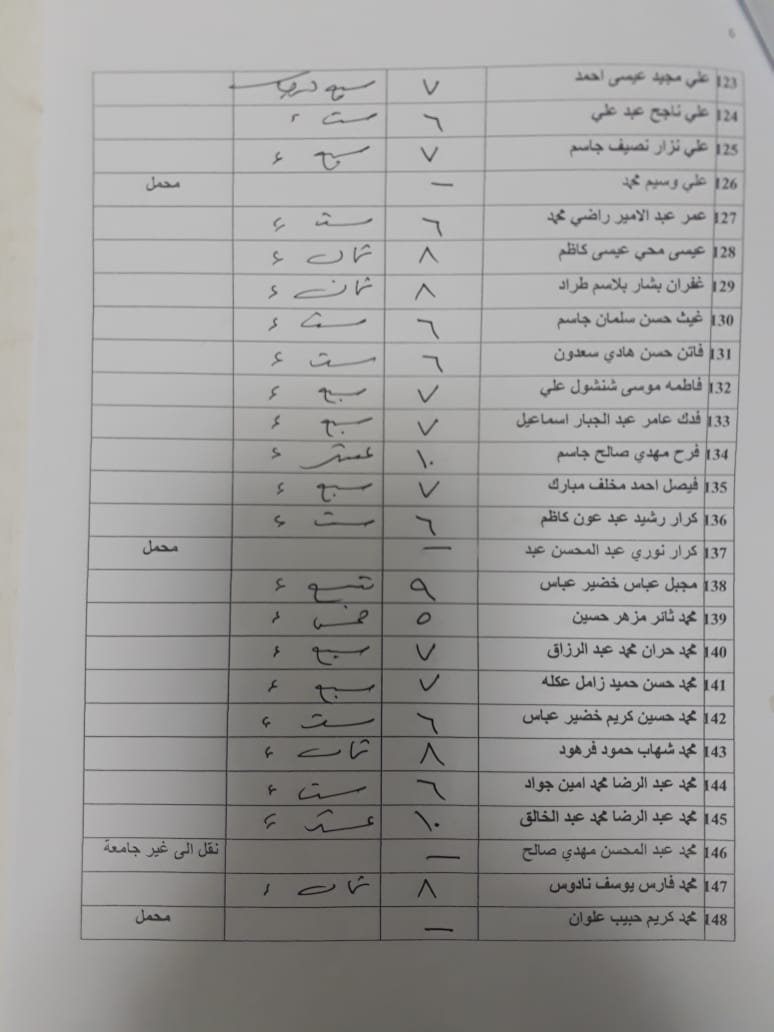 6
123 علي مجيد عيسى احمد ٧ سبع درجات
124 علي ناجح عبد علي ٦ ست ء
125 علي نزار نصيف جاسم ٧ سبع ء
126 علي وسيم محمد — محمل
127 عمر عبد الامير راضي محمد ٦ ست ء
128 عيسى محي عيسى كاظم ٨ ثمان ء
129 غفران بشار بلاسم طراد ٨ ثمان ء
130 غيث حسن سلمان جاسم ٦ ست ء
131 فاتن حسن هادي سعدون ٦ ست ء
132 فاطمه موسى شنشول علي ٧ سبع ء
133 فدك عامر عبد الجبار اسماعيل ٧ سبع ء
134 فرح مهدي صالح جاسم ١٠ عشر ء
135 فيصل احمد مخلف مبارك ٧ سبع ء
136 كرار رشيد عبد عون كاظم ٦ ست ء
137 كرار نوري عبد المحسن عبد — محمل
138 مجبل عباس خضير عباس ٩ تسع ء
139 محمد ثائر مزهر حسين ٥ خمس ء
140 محمد حران محمد عبد الرزاق ٧ سبع ء
141 محمد حسن حميد زامل عكله ٧ سبع ء
142 محمد حسين كريم خضير عباس ٦ ست ء
143 محمد شهاب حمود فرهود ٨ ثمان ء
144 محمد عبد الرضا محمد امين جواد ٦ ست ء
145 محمد عبد الرضا محمد عبد الخالق ١٠ عشر ء
146 محمد عبد المحسن مهدي صالح — نقل الى غير جامعة
147 محمد فارس يوسف نادوس ٨ ثمان ء
148 محمد كريم حبيب علوان — محمل